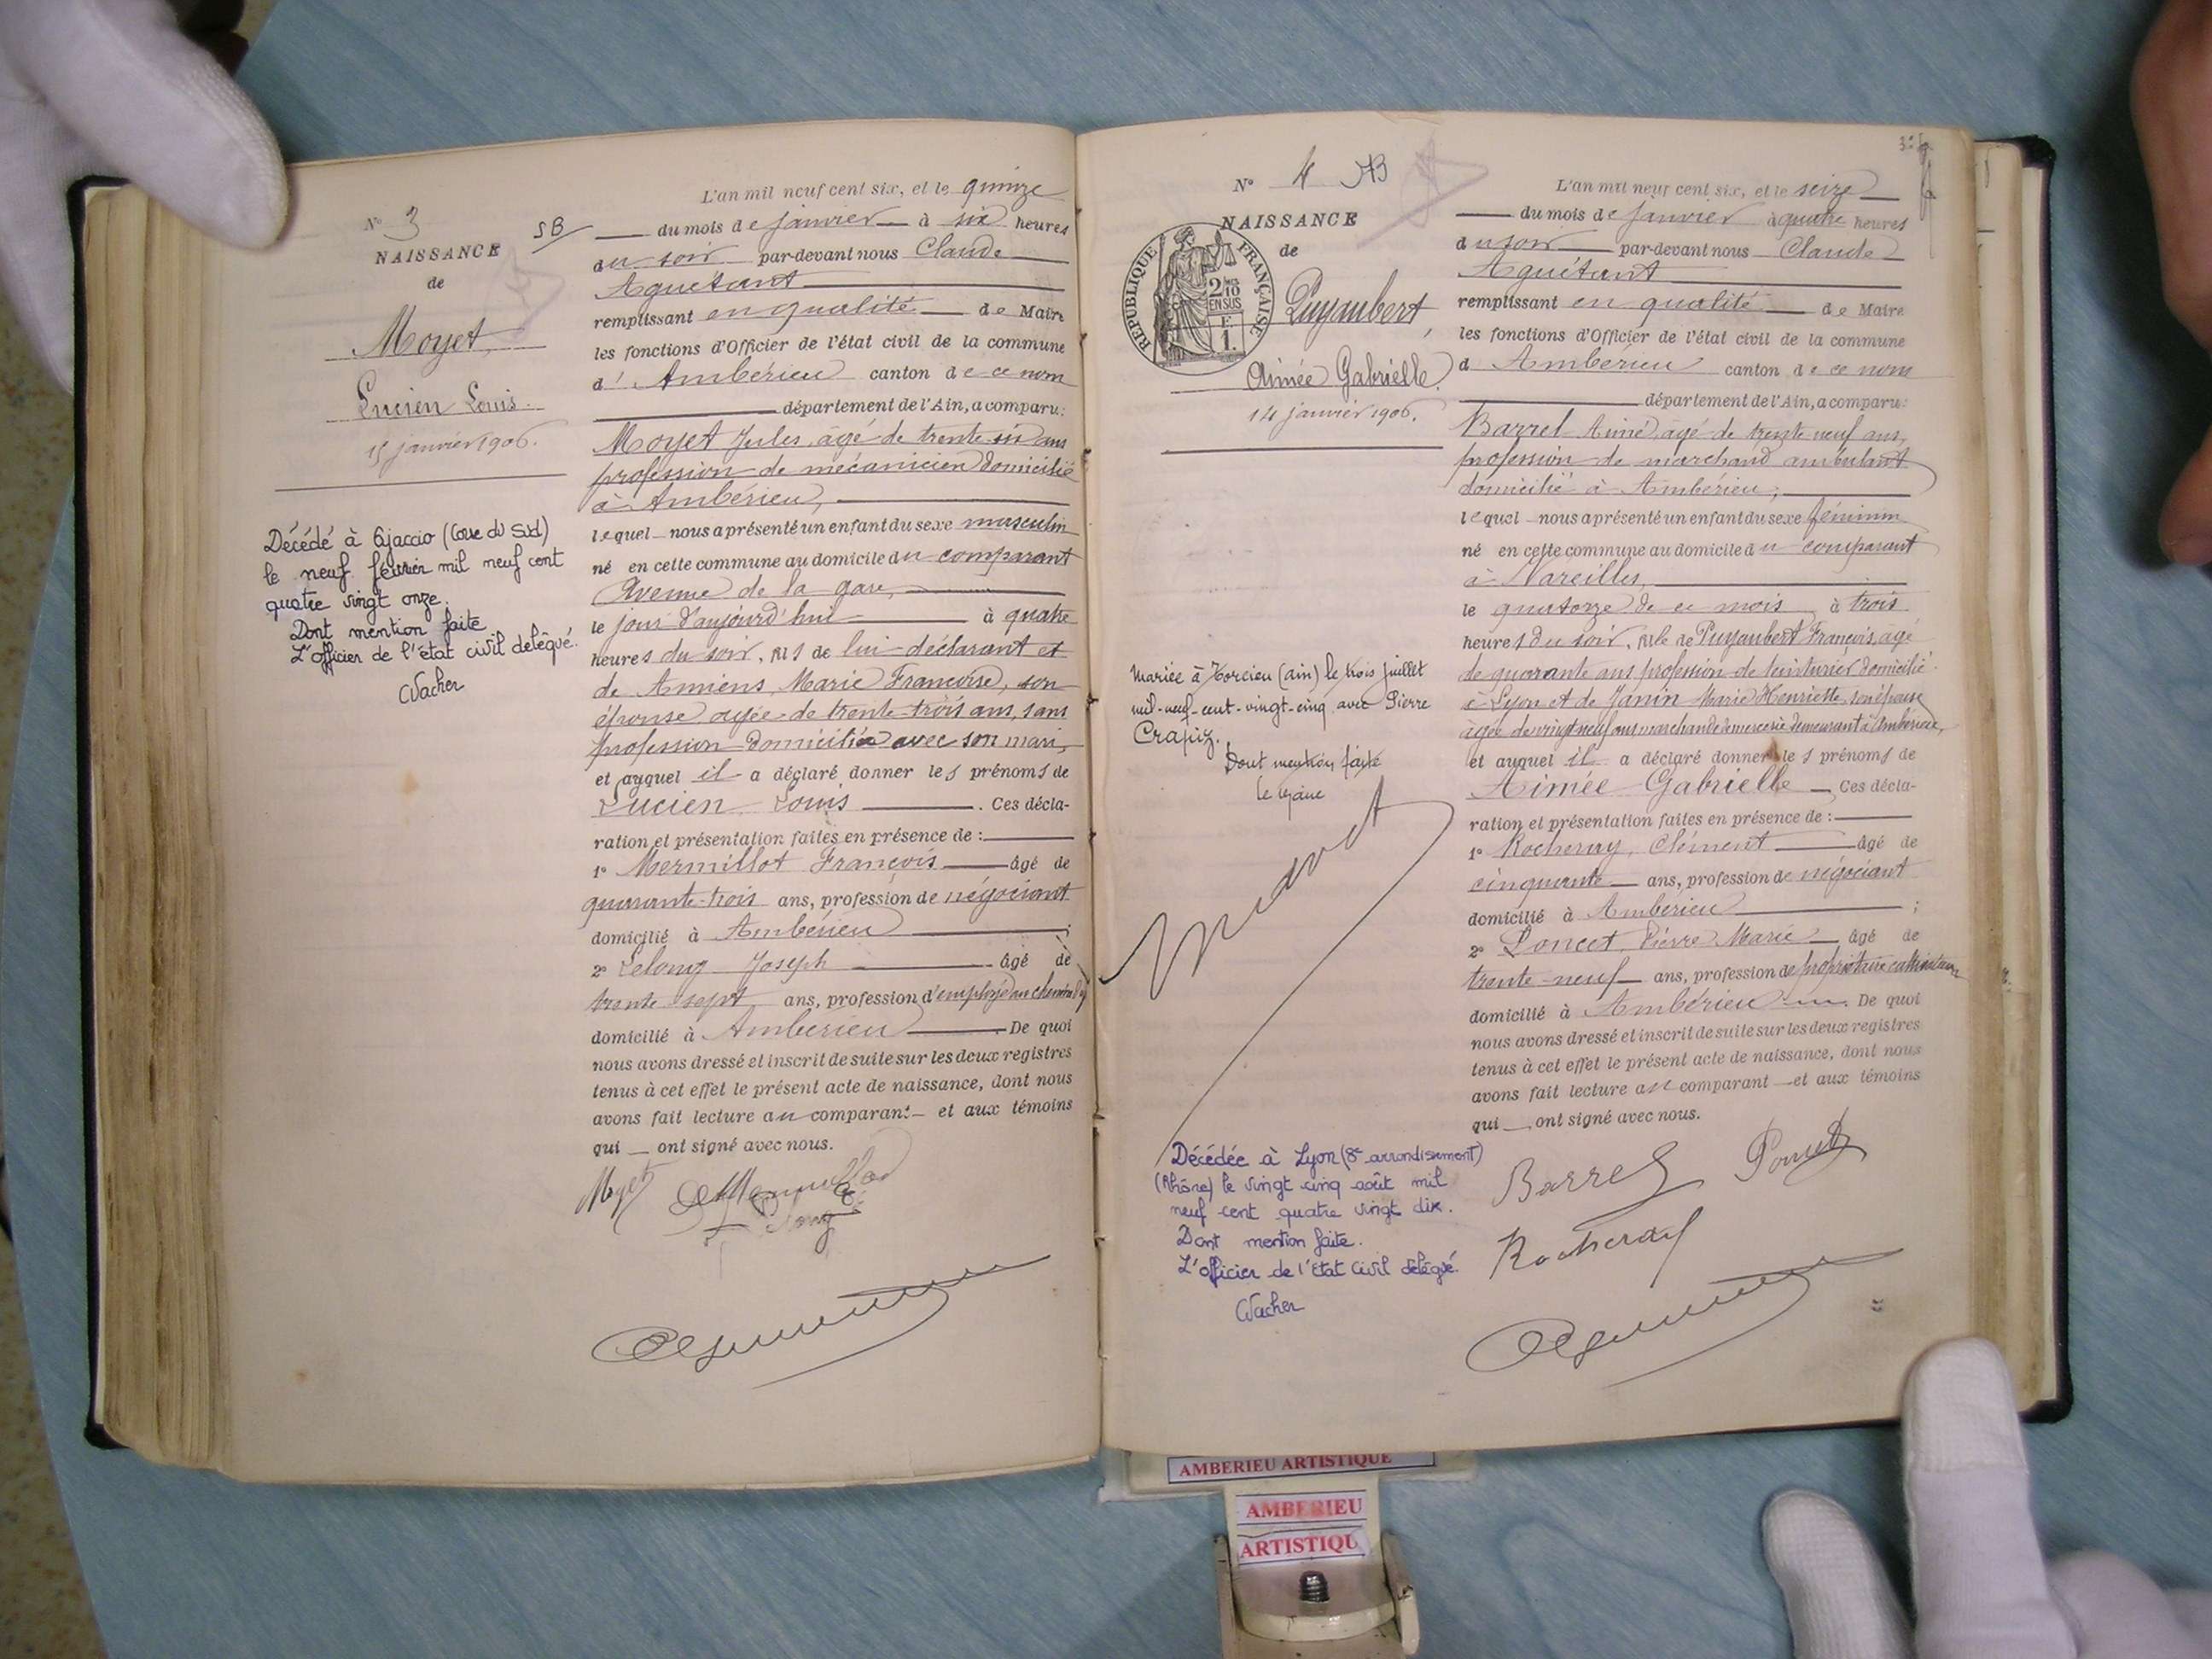 N° 3
NAISSANCE
de
Moyet
Lucien Louis
15 janvier 1906.
Décédé à Ajaccio (Corse du Sud)
le neuf février mil neuf cent
quatre vingt onze.
Dont mention faite
L'officier de l'état civil délégué.
Vacher
SB
L'an mil neuf cent six, et le quinze
du mois de janvier à six heures
du soir par-devant nous Claude
Aguétant
remplissant en qualité de Maire
les fonctions d'Officier de l'état civil de la commune
d' Ambérieu canton de ce nom
département de l'Ain, a comparu:
Moyet Jules, âgé de trente-six ans
profession de mécanicien domicilié
à Ambérieu,
lequel nous a présenté un enfant du sexe masculin
né en cette commune au domicile du comparant
Avenue de la gare,
le jour d'aujourd'hui à quatre
heures du soir, fils de lui déclarant et
de Amiens, Marie Françoise, son
épouse âgée de trente-trois ans, sans
profession domiciliée avec son mari,
et auquel il a déclaré donner les prénoms de
Lucien Louis . Ces décla-
ration et présentation faites en présence de :
1° Mermillot François âgé de
quarante-trois ans, profession de négociant
domicilié à Ambérieu ;
2° Lelong Joseph âgé de
trente-sept ans, profession d'employé au chemin de f
domicilié à Ambérieu . De quoi
nous avons dressé et inscrit de suite sur les deux registres
tenus à cet effet le présent acte de naissance, dont nous
avons fait lecture au comparant et aux témoins
qui ont signé avec nous.
Moyet
N° 4
NAISSANCE
de
REPUBLIQUE FRANÇAISE
2/10
EN SUS
1.
Puyaubert,
Aimée Gabrielle.
14 janvier 1906.
Mariée à Torcieu (Ain) le trois juillet
mil-neuf-cent-vingt-cinq avec Pierre
Crapiz.
Dont mention faite
Le Maire
Décédée à Lyon (8e arrondissement)
(Rhône) le vingt cinq août mil
neuf cent quatre vingt dix.
Dont mention faite.
L'officier de l'Etat Civil délégué.
Vacher
L'an mil neuf cent six, et le seize
du mois de janvier à quatre heures
du soir par-devant nous Claude
Aguétant
remplissant en qualité de Maire
les fonctions d'Officier de l'état civil de la commune
d Ambérieu canton de ce nom
département de l'Ain, a comparu:
Barrel Aimé, âgé de trente neuf ans,
profession de marchand ambulant
domicilié à Ambérieu,
lequel nous a présenté un enfant du sexe féminin
né en cette commune au domicile du comparant
à Vareilles,
le quatorze de ce mois à trois
heures du soir, fille de Puyaubert François, âgé
de quarante ans profession de teinturier domicilié
à Lyon et de Janin Marie Henriette, son épouse
âgée de vingt neuf ans marchande de mercerie demeurant à Ambérieu,
et auquel il a déclaré donner les prénoms de
Aimée Gabrielle Ces décla-
ration et présentation faites en présence de :
1° Rocheray, Clément âgé de
cinquante ans, profession de négociant
domicilié à Ambérieu ;
2° Poncet, Pierre Marie âgé de
trente-neuf ans, profession de propriétaire cultivateur
domicilié à Ambérieu . De quoi
nous avons dressé et inscrit de suite sur les deux registres
tenus à cet effet le présent acte de naissance, dont nous
avons fait lecture au comparant et aux témoins
qui ont signé avec nous.
Barrel Poncet
Rocheray
AMBERIEU ARTISTIQUE
AMBERIEU
ARTISTIQU